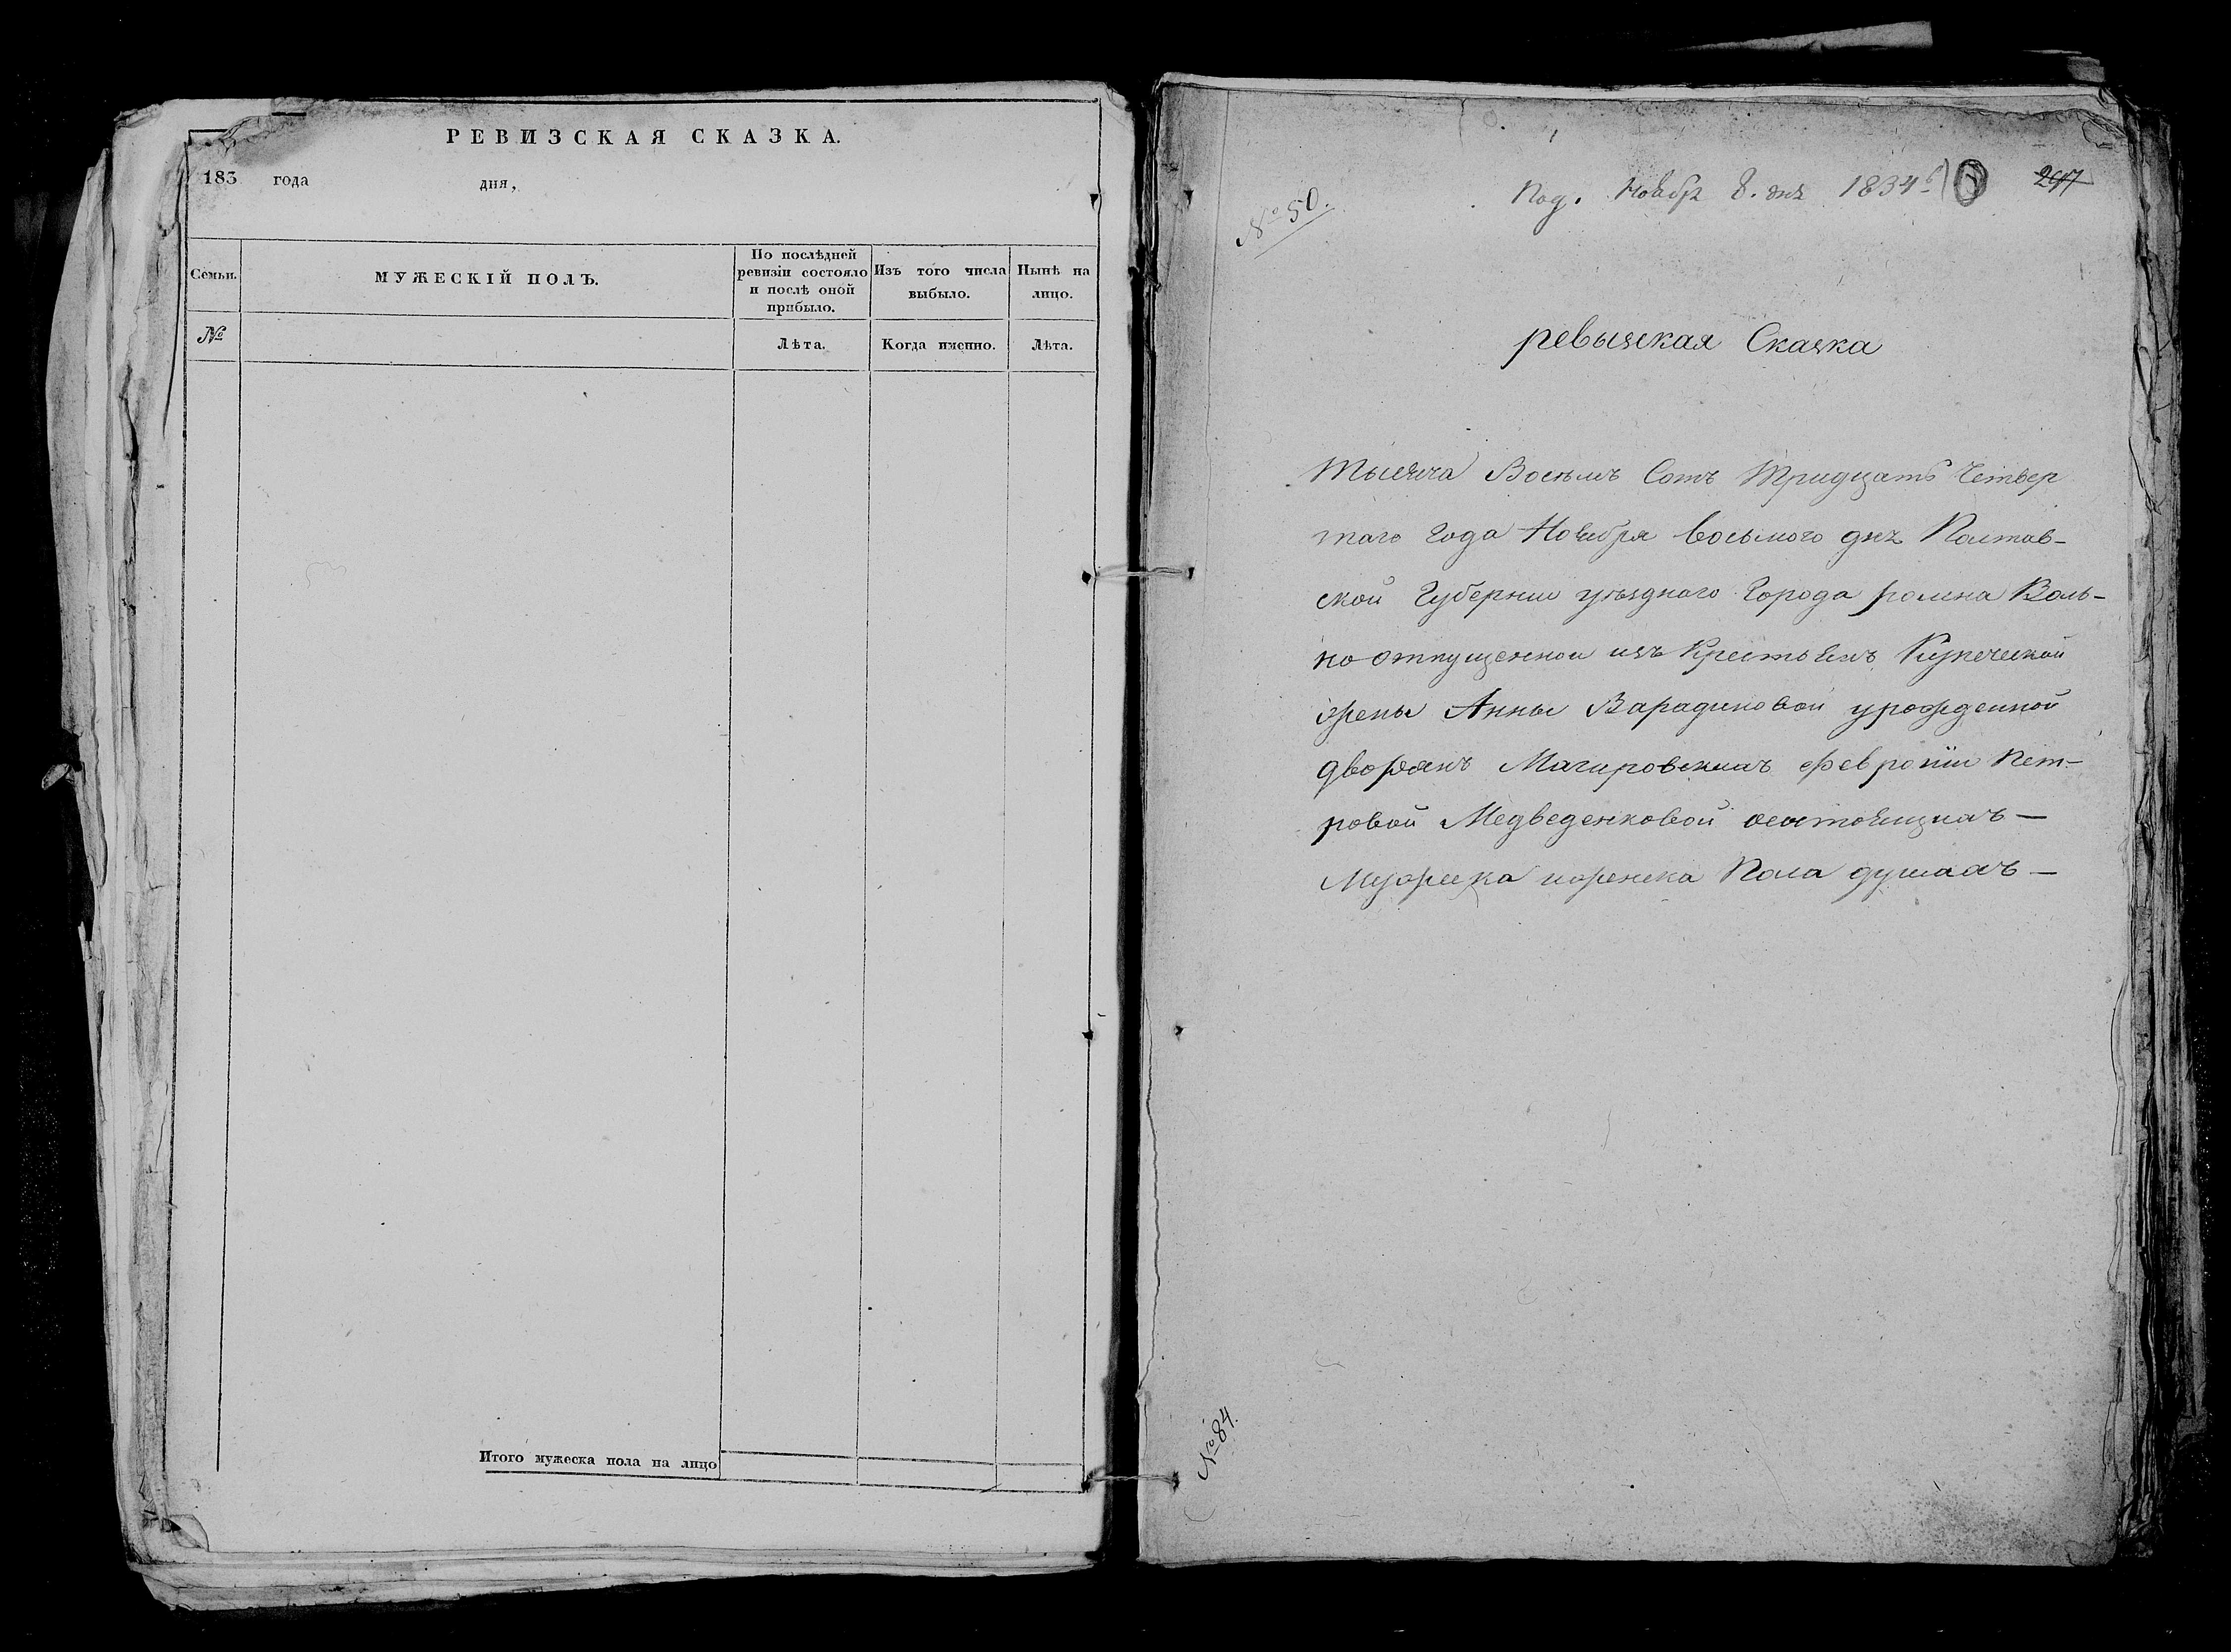 РЕВИЗСКАЯ СКАЗКА.
183 года дня,
Семьи.
МУЖЕСКІЙ ПОЛЪ.
По послѣдней
ревизіи состояло
и послѣ оной
прибыло.
Изъ того числа
выбыло.
Нынѣ на
лицо.
№
Лѣта.
Когда именно.
Лѣта.
Итого мужеска пола на лицо
№ 50.
Под. Ноябр 8. дня 1834
297
ревызская Сказка
Тысяча Восѣмъ Сотъ Тридцать Четвер
таго Года Ноября восьмого дня Полтав-
ской Губернии уѣзднаго Города ромна Воль-
но отпущенной изъ Крестьянъ Купеческой
жены Анны Варадиновой урожденной
дворянъ Мачировскихъ Февроніи Пет-
ровой Медведенковой состоящихъ —
Мужеска иженска Пола душахъ —
№ 84.